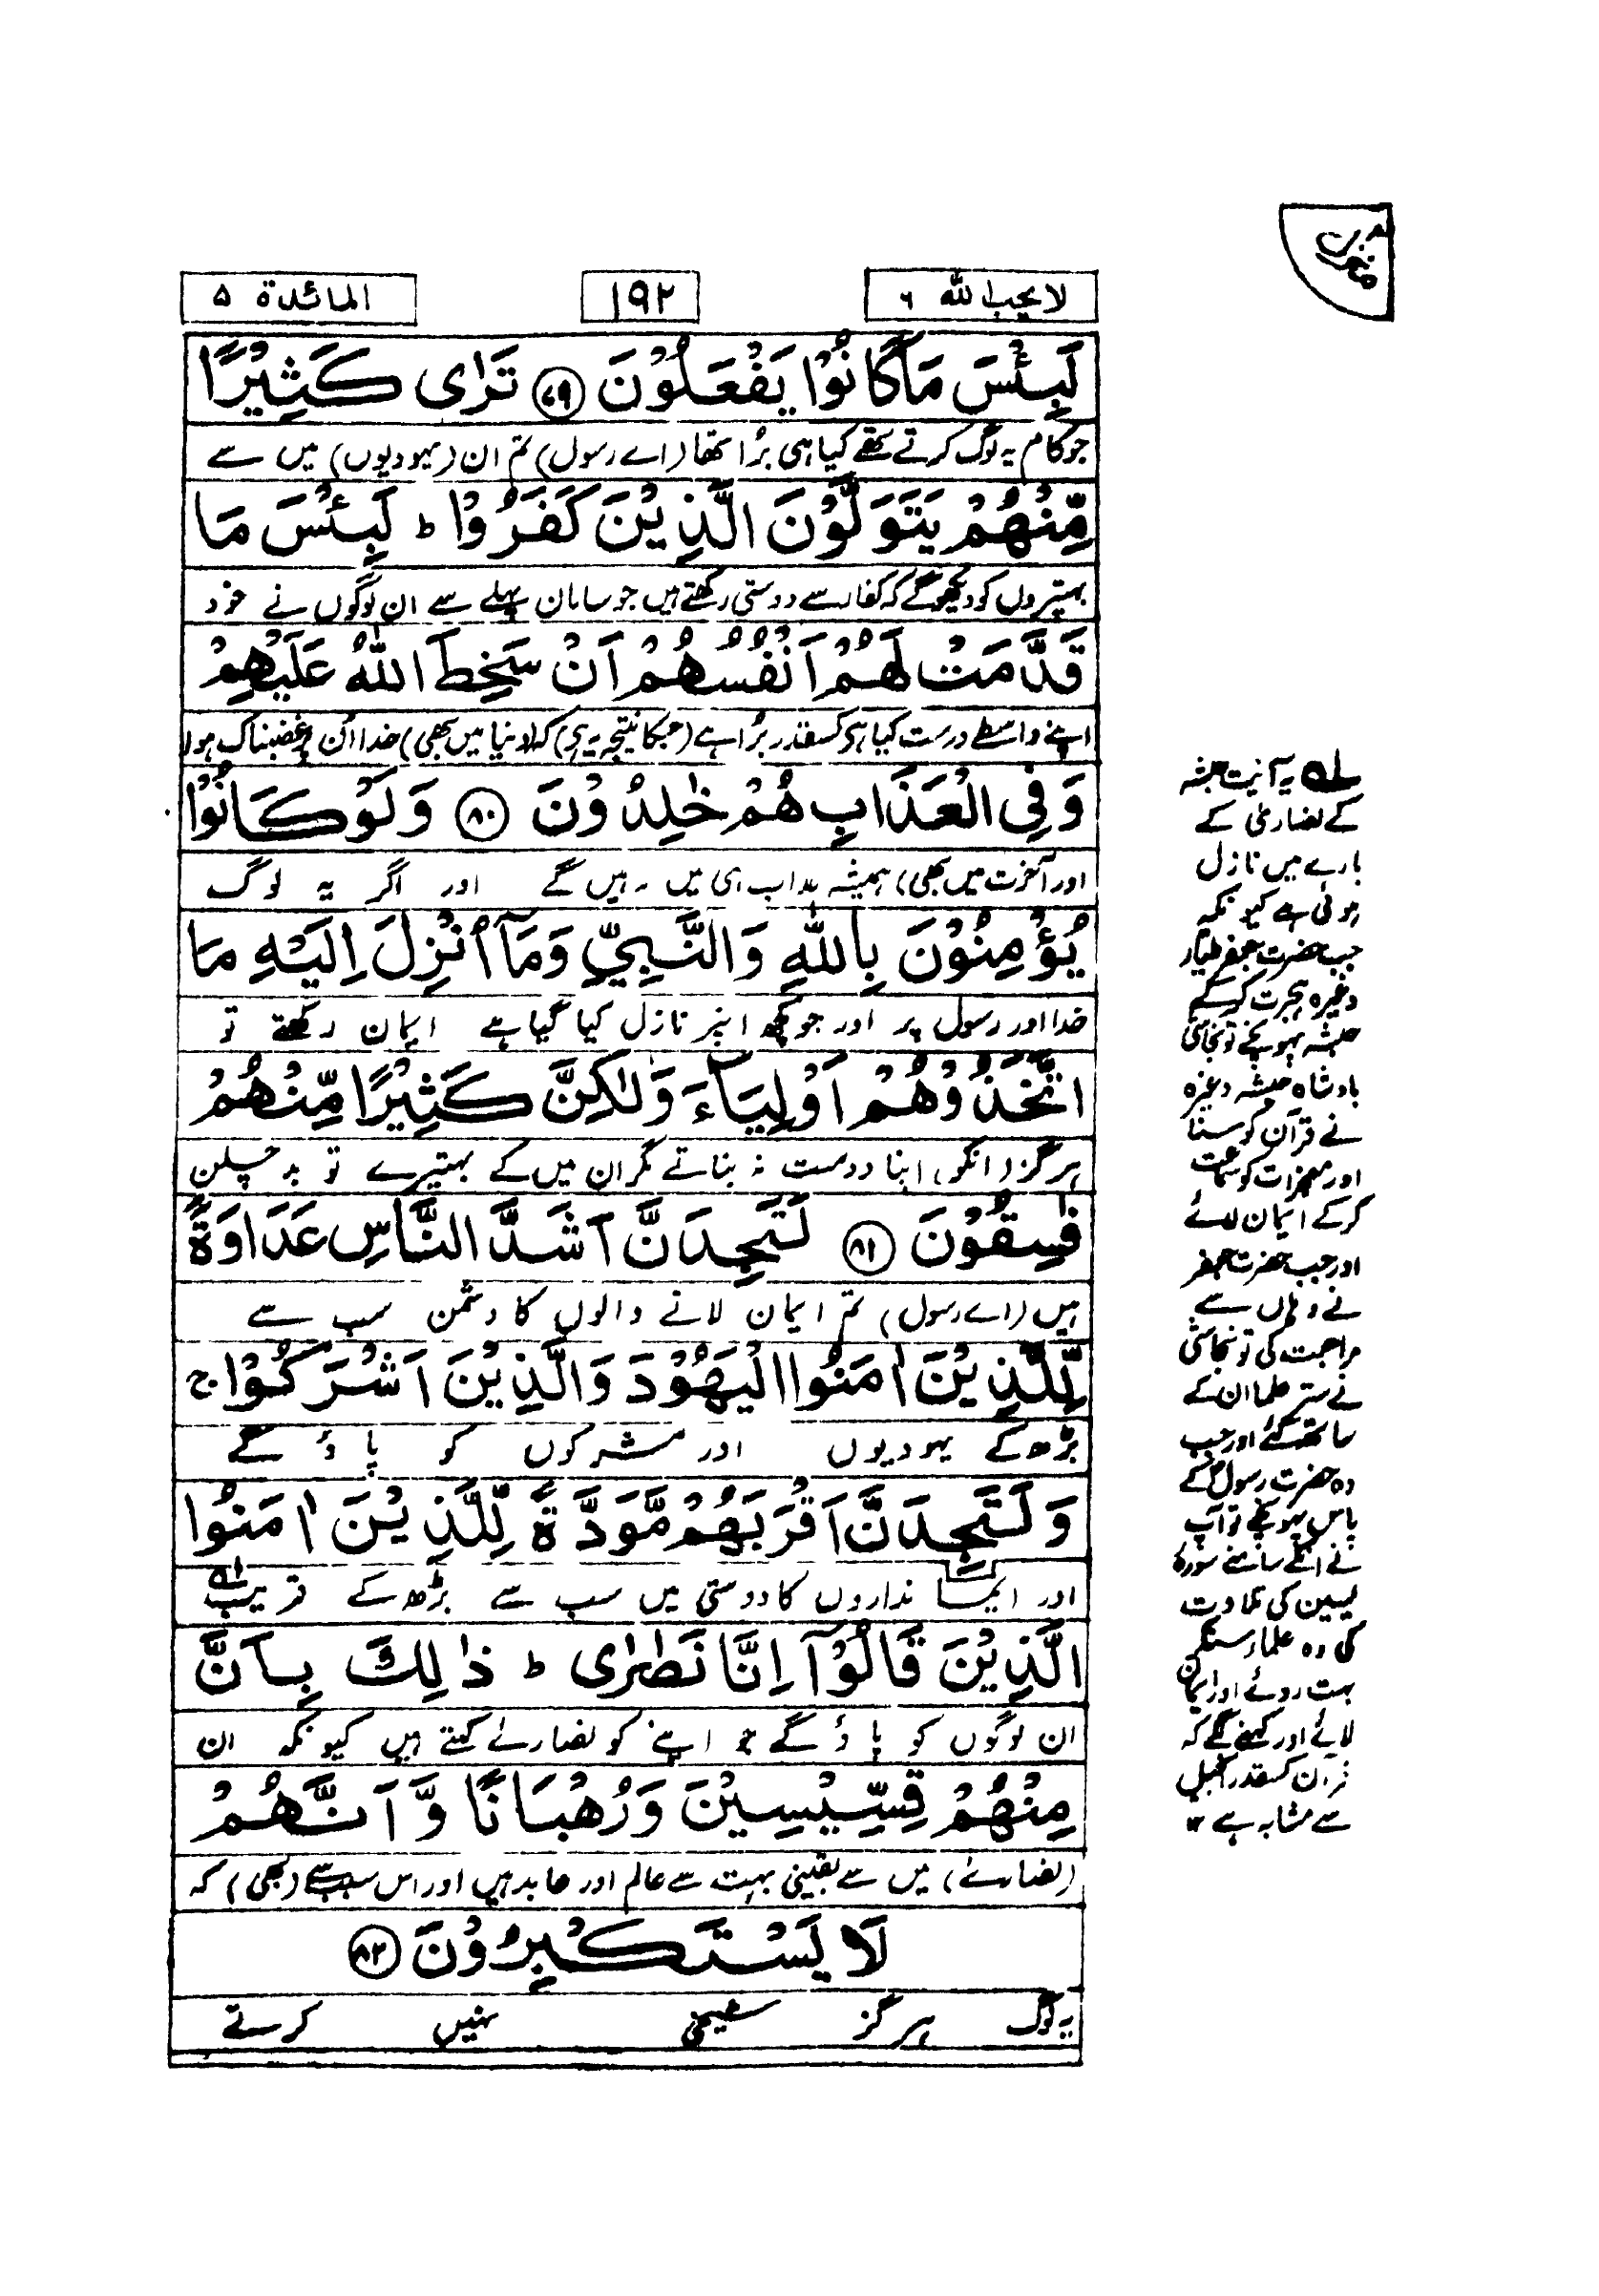 لا یحب اللہ ٦
١٩٢
المائدۃ ۵
لَبِئْسَ مَا كَانُوْا يَفْعَلُوْنَ ﴿۷۹﴾ تَرٰى كَثِيْرًا
جو کام یہ لوگ کرتے تھے کیا ہی برُا تھا (اے رسول) تم ان (یہودیوں) میں سے
مِّنْهُمْ يَتَوَلَّوْنَ الَّذِيْنَ كَفَرُوْا ؕ لَبِئْسَ مَا
بہتیروں کو دیکھو گے کہ کفار سے دوستی رکھتے ہیں جو سامان پہلے سے ان لوگوں نے خود
قَدَّمَتْ لَهُمْ اَنْفُسُهُمْ اَنْ سَخِطَ اللّٰهُ عَلَيْهِمْ
اپنے واسطے درست کیا ہے کسقدر برُا ہے (جسکا نتیجہ یہ ہے) کہ (دنیا میں بھی) خدا اُن پر غضبناک ہوا
وَفِى الْعَذَابِ هُمْ خٰلِدُوْنَ ﴿۸۰﴾ وَلَوْ كَانُوْا
اور آخرت میں بھی) ہمیشہ عذاب ہی میں رہیں گے اور اگر یہ لوگ
يُؤْمِنُوْنَ بِاللّٰهِ وَالنَّبِيِّ وَمَآ اُنْزِلَ اِلَيْهِ مَا
خدا اور رسول پر اور جو کچھ اسپر نازل کیا گیا ہے ایمان رکھتے تو
اتَّخَذُوْهُمْ اَوْلِيَآءَ وَلٰكِنَّ كَثِيْرًا مِّنْهُمْ
ہرگز (انکو) اپنا دوست نہ بناتے مگر ان میں کے بہتیرے تو بد چلن
فٰسِقُوْنَ ﴿۸۱﴾ لَتَجِدَنَّ اَشَدَّ النَّاسِ عَدَاوَةً
ہیں (اے رسول) تم ایمان لانے والوں کا دشمن سب سے
لِّلَّذِيْنَ اٰمَنُوا الْيَهُوْدَ وَالَّذِيْنَ اَشْرَكُوْا ۚ
بڑھ کے یہودیوں اور مشرکوں کو پاؤ گے
وَلَتَجِدَنَّ اَقْرَبَهُمْ مَّوَدَّةً لِّلَّذِيْنَ اٰمَنُوا
اور ایمانداروں کا دوستی میں سب سے بڑھ کے قریب لہ
الَّذِيْنَ قَالُوْٓا اِنَّا نَصٰرٰى ؕ ذٰلِكَ بِاَنَّ
ان لوگوں کو پاؤ گے جو اپنے کو نصاریٰ کہتے ہیں کیونکہ ان
مِنْهُمْ قِسِّيْسِيْنَ وَرُهْبَانًا وَّاَنَّهُمْ
(نصاریٰ) میں سے یقینی بہت سے عالم اور عابد ہیں اور اس سبب سے (بھی) کہ
لَا يَسْتَكْبِرُوْنَ ﴿۸۲﴾
یہ لوگ ہرگز شیخی نہیں کرتے
لہ یہ آیت حبشہ
کے نصاریٰ کے
بارے میں نازل
ہوئی ہے کیونکہ
جب حضرت جعفر طیار
وغیرہ ہجرت کرکے
حبشہ پہونچے تو نجاشی
بادشاہ حبشہ وغیرہ
نے قرآن کو سنا
اور معجزات کو سماعت
کرکے ایمان لائے
اور جب حضرت جعفر
نے وہاں سے
مراجعت کی تو نجاشی
نے ستر علما ان کے
ساتھ کئے اور جب
وہ حضرت رسولؐ کے
پاس پہونچے تو آپ
نے انکے سامنے سورہ
یٰسین کی تلاوت
کی وہ علماء سنکر
بہت روئے اور ایمان
لائے اور کہنے لگے کہ
قرآن کسقدر انجیل
سے مشابہ ہے ۱۲